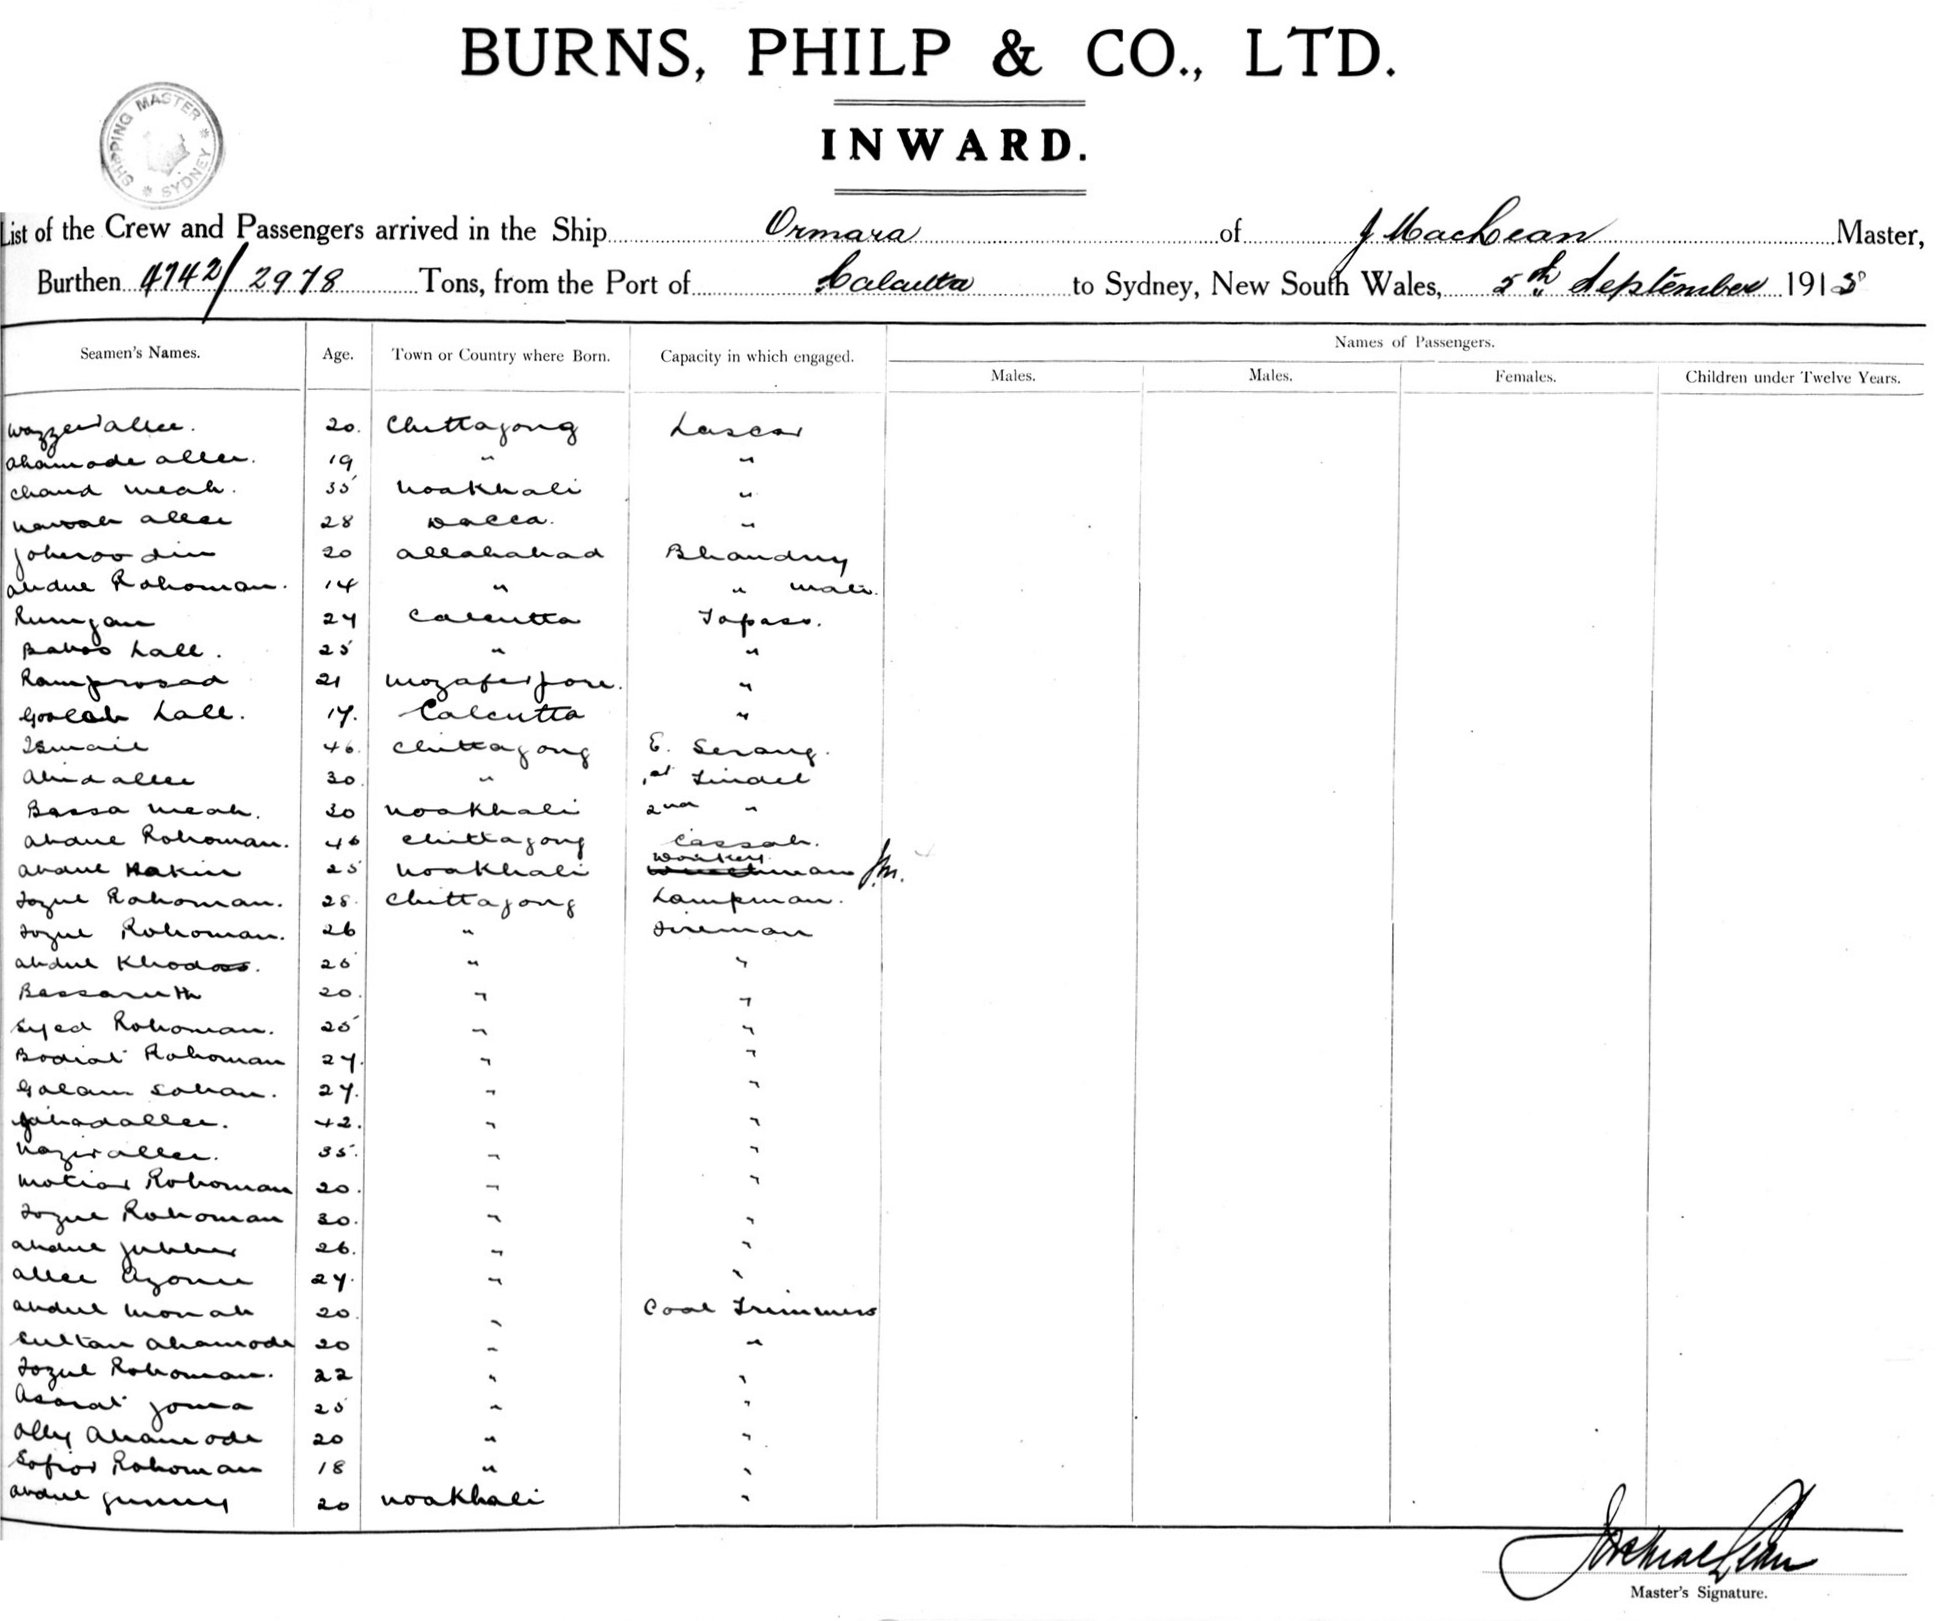 BURNS, PHILP & CO., LTD.
SHIPPING MASTER SYDNEY
INWARD.
List of the Crew and Passengers arrived in the Ship Ormara of J MacLean Master,
Burthen 4742/2978 Tons, from the Port of Calcutta to Sydney, New South Wales, 5th September 1913
Seamen's Names. Age. Town or Country where Born. Capacity in which engaged. Names of Passengers.
Males. Males. Females. Children under Twelve Years.
Wazzer allee. 20. Chittagong Lascar
Ahamode allee. 19 " "
Chand meah. 35 Noakhali "
Nawab allee 28 Dacca. "
Joheroodin 20 Allahabad Bhandry
Abdul Rohoman. 14 " " mate.
Rumjan 27 Calcutta Topass.
Baboo Lall. 25 " "
Ramprosad 21 Mozaferpore. "
Goolab Lall. 17. Calcutta "
Ismail 46. Chittagong E. Serang.
Abid allee 30. " 1st Tindel
Bassa meah. 30 Noakhali 2nd "
Abdul Rohoman. 46 Chittagong Cassab.
Abdul Hakim 25 Noakhali Donkeyman J.M.
Fozul Rohoman. 28. Chittagong Lampman.
Fozul Rohoman. 26 " Fireman
Abdul Khodoss. 25 " "
Bassaruth 20. " "
Syed Rohoman. 25 " "
Bodiat Rohoman 27. " "
Golam Soban. 27. " "
allee. 42. " "
Nazir allee. 35. " "
Motiar Rohoman 20. " "
Fozul Rohoman 30. " "
Abdul Jubber 26. " "
Allee Azom 27. " "
Abdul Monab 20. " Coal Trimmers
Sultan Ahamode 20 " "
Fozul Rohoman. 22 " "
Asarat Joma 25 " "
Ally Ahamode 20 " "
Sofior Rohoman 18 " "
Abdul 20 Noakhali "
J MacLean
Master's Signature.